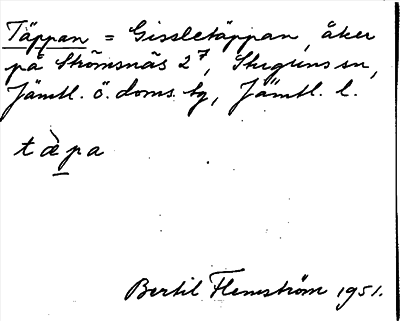 Täppan = Gissletäppan, åker
på Strömsnäs 2⁷, Stuguns sn,
Jämtl. ö. doms. tg, Jämtl. l.
tæ̀pa
Bertil Flemström 1951.